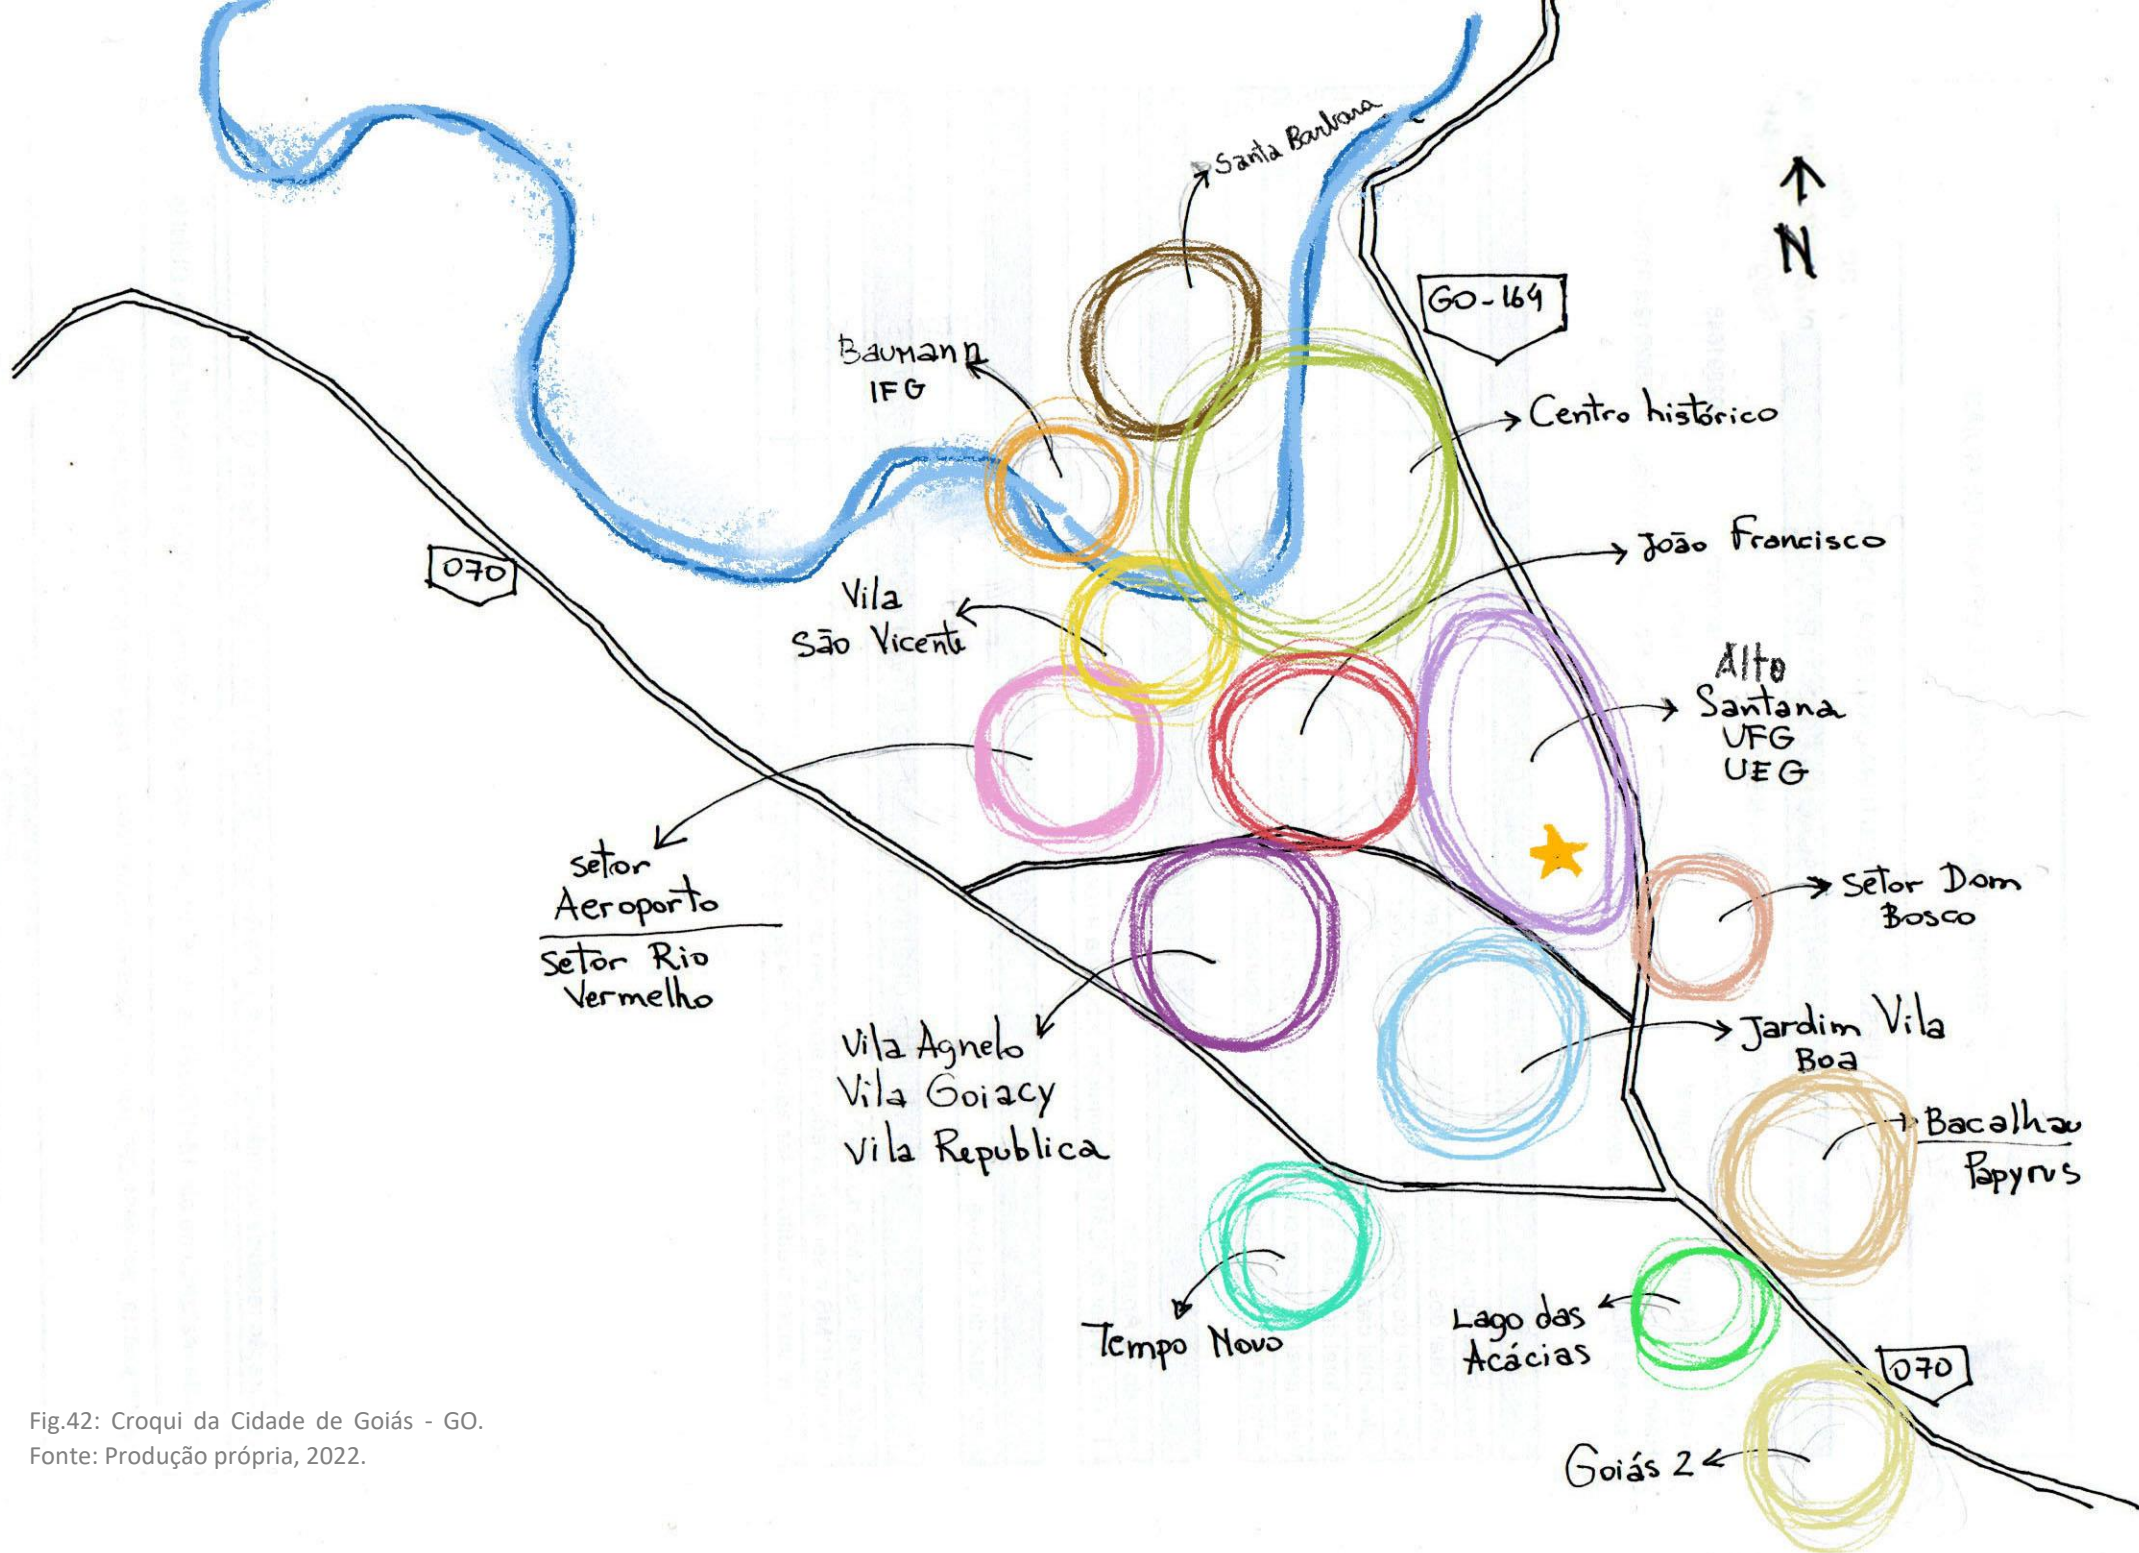 Santa Barbara
N
GO-164
Baumann
IFG
Centro histórico
070
João Francisco
Vila
São Vicente
Alto
Santana
UFG
UEG
setor
Aeroporto
Setor Rio
Vermelho
Setor Dom
Bosco
Vila Agnelo
Vila Goiacy
Vila Republica
Jardim Vila
Boa
Bacalhau
Papyrus
Tempo Novo
Lago das
Acácias
070
Goiás 2
Fig.42: Croqui da Cidade de Goiás - GO.
Fonte: Produção própria, 2022.